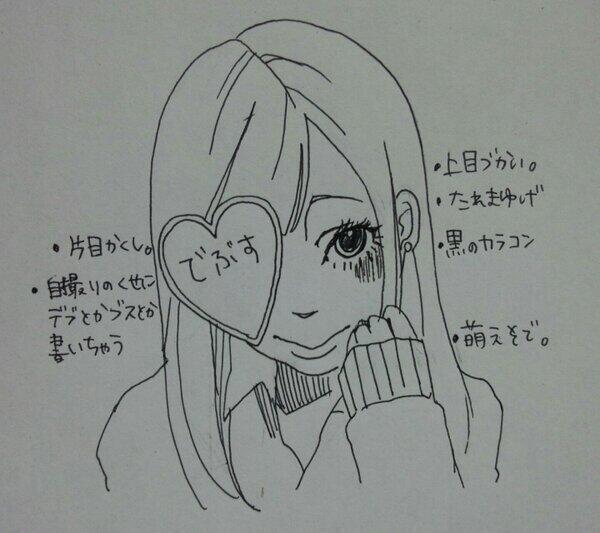 ・片目かくし。
・自撮りのくせに
デブとかブスとか
書いちゃう
でぶす
・上目づかい。
・たれまゆげ
・黒のカラコン
・萌えそで。